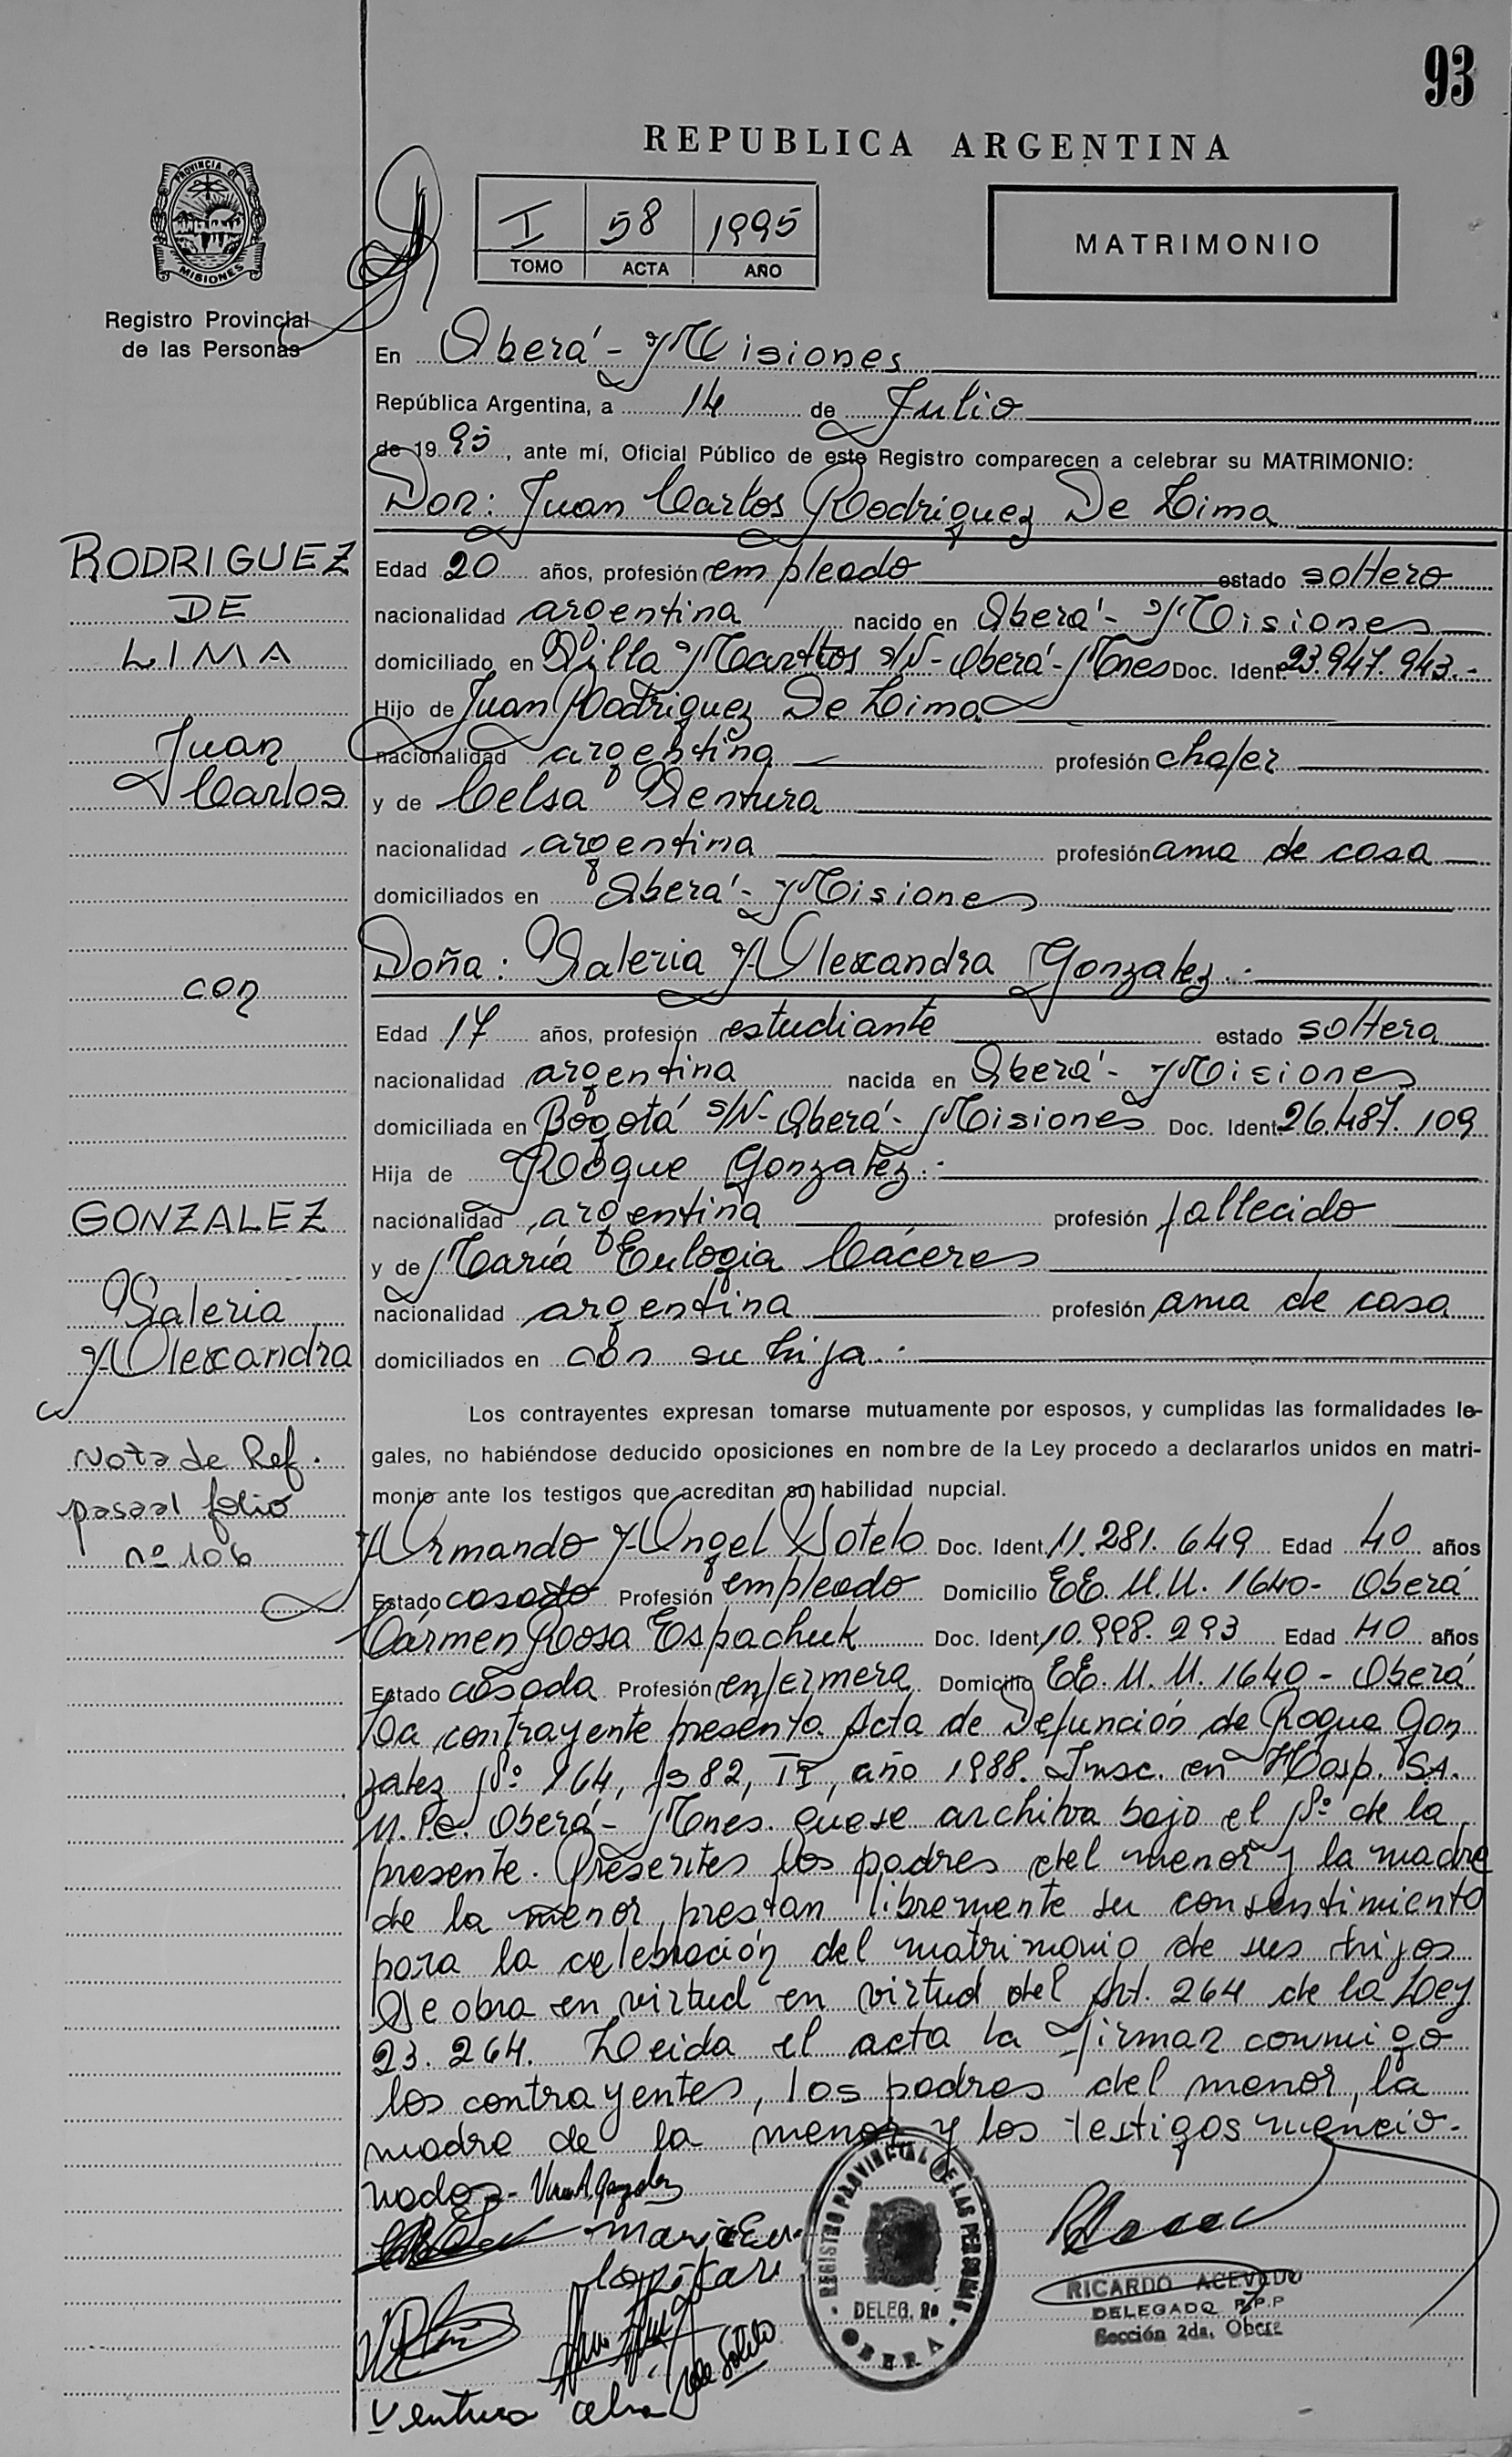 93
REPUBLICA ARGENTINA
PROVINCIA DE
MISIONES
Registro Provincial
de las Personas
I 58 1995
TOMO ACTA AÑO
MATRIMONIO
En Oberá - Misiones
República Argentina, a 14 de Julio
de 19 95, ante mí, Oficial Público de este Registro comparecen a celebrar su MATRIMONIO:
Don: Juan Carlos Rodriguez De Lima
Edad 20 años, profesión empleado estado soltero
nacionalidad argentina nacido en Oberá - Misiones
domiciliado en Villa Marttos s/N - Oberá - Mnes Doc. Ident. 23.947.943.-
Hijo de Juan Rodriguez De Lima
nacionalidad argentina profesión chofer
y de Celsa Ventura
nacionalidad argentina profesión ama de casa
domiciliados en Oberá - Misiones
Doña: Valeria Alexandra Gonzalez.-
Edad 17 años, profesión estudiante estado soltera
nacionalidad argentina nacida en Oberá - Misiones
domiciliada en Bogotá s/N - Oberá - Misiones Doc. Ident. 26.487.109
Hija de Roque Gonzalez.-
nacionalidad argentina profesión fallecido
y de María Eulogia Cáceres
nacionalidad argentina profesión ama de casa
domiciliados en con su hija.-
Los contrayentes expresan tomarse mutuamente por esposos, y cumplidas las formalidades le-
gales, no habiéndose deducido oposiciones en nombre de la Ley procedo a declararlos unidos en matri-
monio ante los testigos que acreditan su habilidad nupcial.
Armando Angel Sotelo Doc. Ident. 11.281.649 Edad 40 años
Estado casado Profesión empleado Domicilio EE.U.U. 1640 - Oberá
Cármen Rosa Espachuk Doc. Ident. 10.998.293 Edad 40 años
Estado casada Profesión enfermera Domicilio EE.U.U. 1640 - Oberá
La contrayente presenta Acta de Defunción de Roque Gon
zalez Nº 164, fs 82, II, año 1988. Insc. en Hosp. SA.
Oberá - Mnes. que se archiva bajo el Nº de la
presente. Presentes los padres del menor y la madre
de la menor, prestan libremente su consentimiento
para la celebración del matrimonio de sus hijos
Se obra en virtud en virtud del Art. 264 de la Ley
23.264. Leida el acta la firman conmigo
los contrayentes, los padres del menor, la
madre de la menor y los testigos mencio-
nados.-
Ventura Celsa
de Sotelo
REGISTRO PROVINCIAL DE LAS PERSONAS
DELEG. 2a
OBERA
RICARDO ACEVEDO
DELEGADO R.P.P
Sección 2da. Oberá
RODRIGUEZ
DE
LIMA
Juan
Carlos
con
GONZALEZ
Valeria
Alexandra
Nota de Ref.
pasa al folio
nº 106